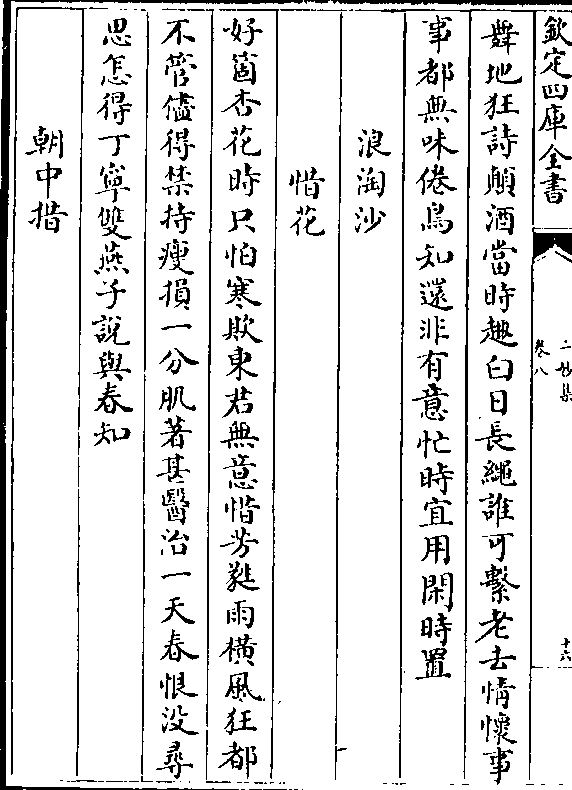 欽定四庫全書
二妙集
卷八
十六
舞地狂詩顛酒當時趣白日長繩誰可繫老去情懷事
事都無味倦鳥知還非有意忙時宜用閑時置
浪淘沙
惜花
好箇杏花時只怕寒欺東君無意惜芳蕤雨橫風狂都
不管儘得禁持瘦損一分肌著甚醫治一天春恨没尋
思怎得丁寧雙燕子說與春知
朝中措